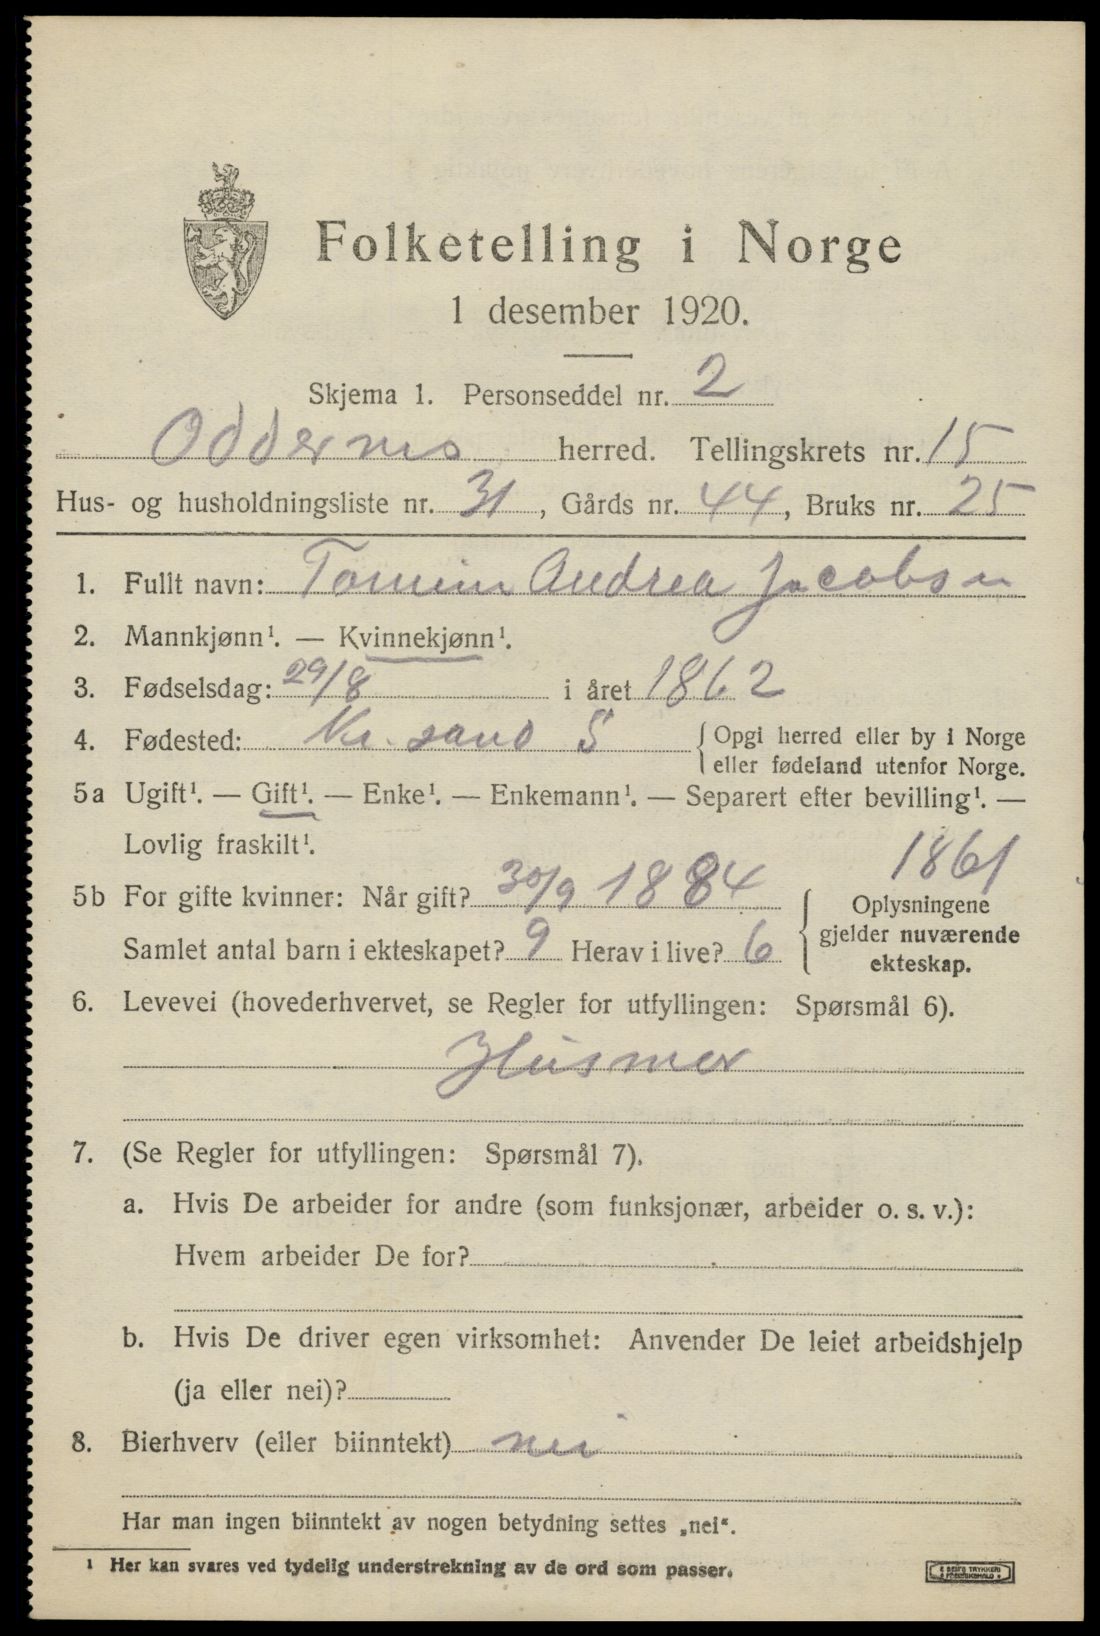 Folketelling i Norge
1 desember 1920.
Skjema 1. Personseddel nr. 2
Oddernes herred. Tellingskrets nr. 15
Hus- og husholdningsliste nr. 31, Gårds nr. 44, Bruks nr. 25
1. Fullt navn: Andrea Jacobsen
2. Mannkjønn¹. — Kvinnekjønn¹.
3. Fødselsdag: 29/8 i året 1862
4. Fødested: Kr. sand S { Opgi herred eller by i Norge
eller fødeland utenfor Norge.
5a Ugift¹. — Gift¹. — Enke¹. — Enkemann¹. — Separert efter bevilling¹. —
Lovlig fraskilt¹. 1861
5b For gifte kvinner: Når gift? 30/9 1884
Samlet antal barn i ekteskapet? 9 Herav i live? 6
{ Oplysningene
gjelder nuværende
ekteskap.
6. Levevei (hovederhvervet, se Regler for utfyllingen: Spørsmål 6).
Husmor
7. (Se Regler for utfyllingen: Spørsmål 7).
a. Hvis De arbeider for andre (som funksjonær, arbeider o. s. v.):
Hvem arbeider De for?
b. Hvis De driver egen virksomhet: Anvender De leiet arbeidshjelp
(ja eller nei)?
8. Bierhverv (eller biinntekt) nei
Har man ingen biinntekt av nogen betydning settes „nei“.
¹ Her kan svares ved tydelig understrekning av de ord som passer.